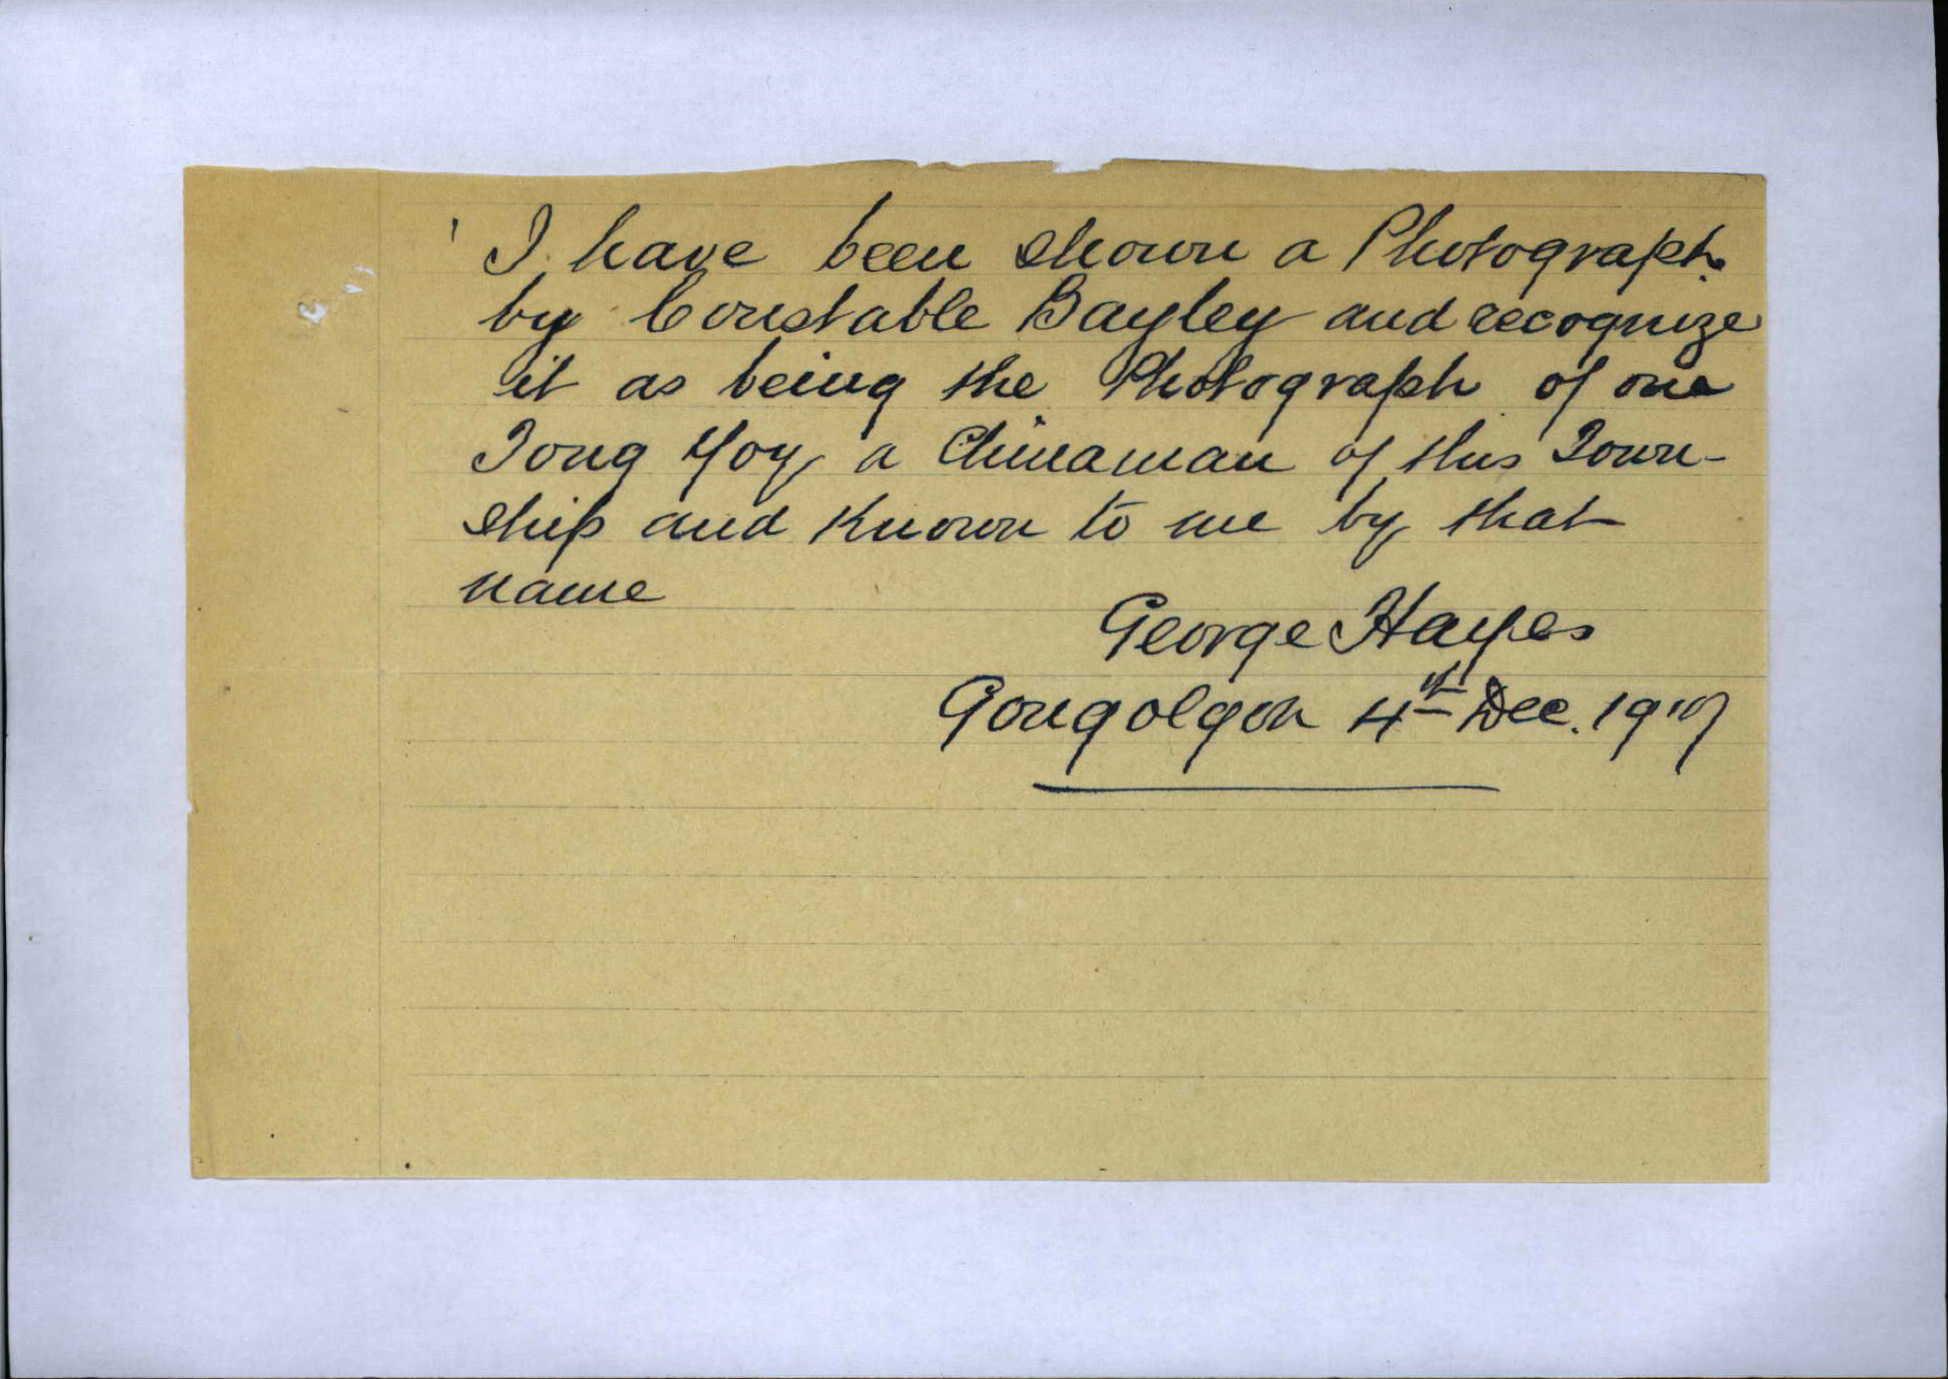 I have been shown a Photograph
by Constable Bayley and recognize
it as being the Photograph of one
Tong Yoy a Chinaman of this Town-
ship and Known to me by that
name
George Hayes
Gongolgon 4th Dec. 1917